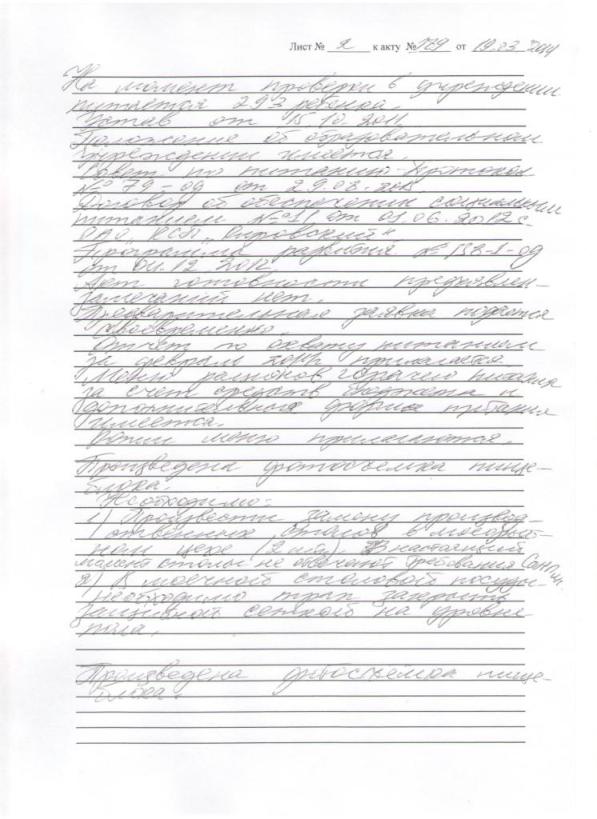 Лист № 2 к акту № 129 от 19.03 2014
На момент проверки в учреждении
питается 293 ребенка.
Устав от 15.10.2011
Положение об образовательном
учреждении имеется.
Совет по питанию протокол
№ 79-09 от 29.08.
Договор об обеспечении социальным
питанием № 11 от 01.06.2012 с
ОАО КСП
Программа развития №
от 04.12
Акт готовности предъявлен
замечаний нет.
Предварительная заявка подается
своевременно.
Отчет по охвату питанием
за февраль прилагается.
Меню рационов горячего питания
за счет средств бюджета и
дополнительных питания
имеется.
Копии меню прилагаются.
Произведена фотосъемка пище-
блока.
Необходимо:
1) Произвести замену производ-
ственных столов в
цехе (2 шт). В настоящий
момент столы не отвечают требования СанПин.
2) В моечной столовой посуды
необходимо трап закрыть
сеткой на уровне
пола.
Произведена фотосъемка пище-
блока.